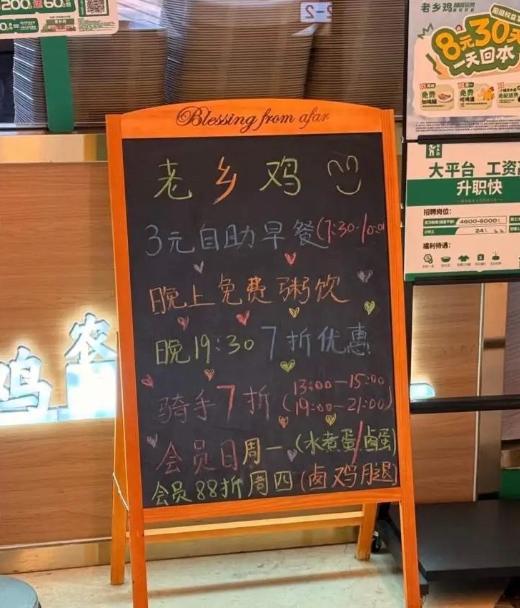 Blessing from afar
老乡鸡
3元自助早餐(7:30-10:00
晚上免费粥饮
晚19:30 7折优惠
骑手7折(13:00-15:00
19:00-21:00)
会员日周一(水煮蛋/卤蛋)
会员88折周四(卤鸡腿)
老乡鸡
8元30天
一天回本
免费
免费
大平台 工资高
升职快
招聘岗位:
福利待遇:
鸡
农